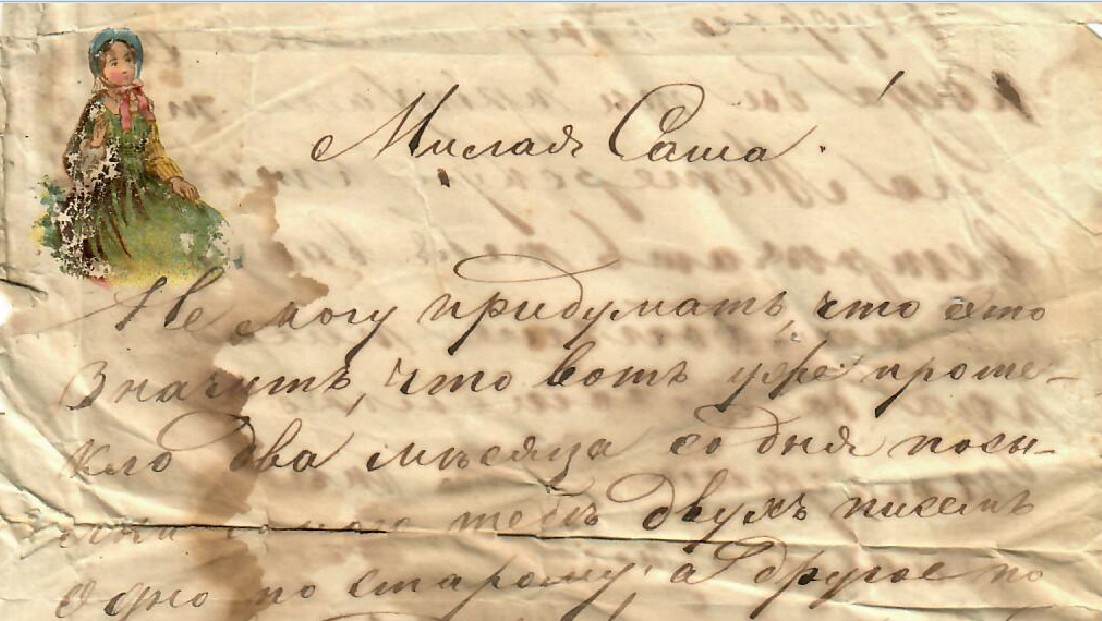 Милая Саша.
Не могу придумать, что это
значитъ, что вотъ уже проте-
кло два мѣсяца со дня посы-
мною тебѣ двухъ писемъ
одно по старому, а другое по